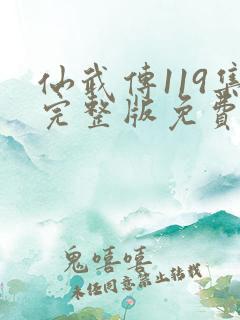 仙武传119集
完整版免费
鬼嘻嘻
未经同意禁止转载